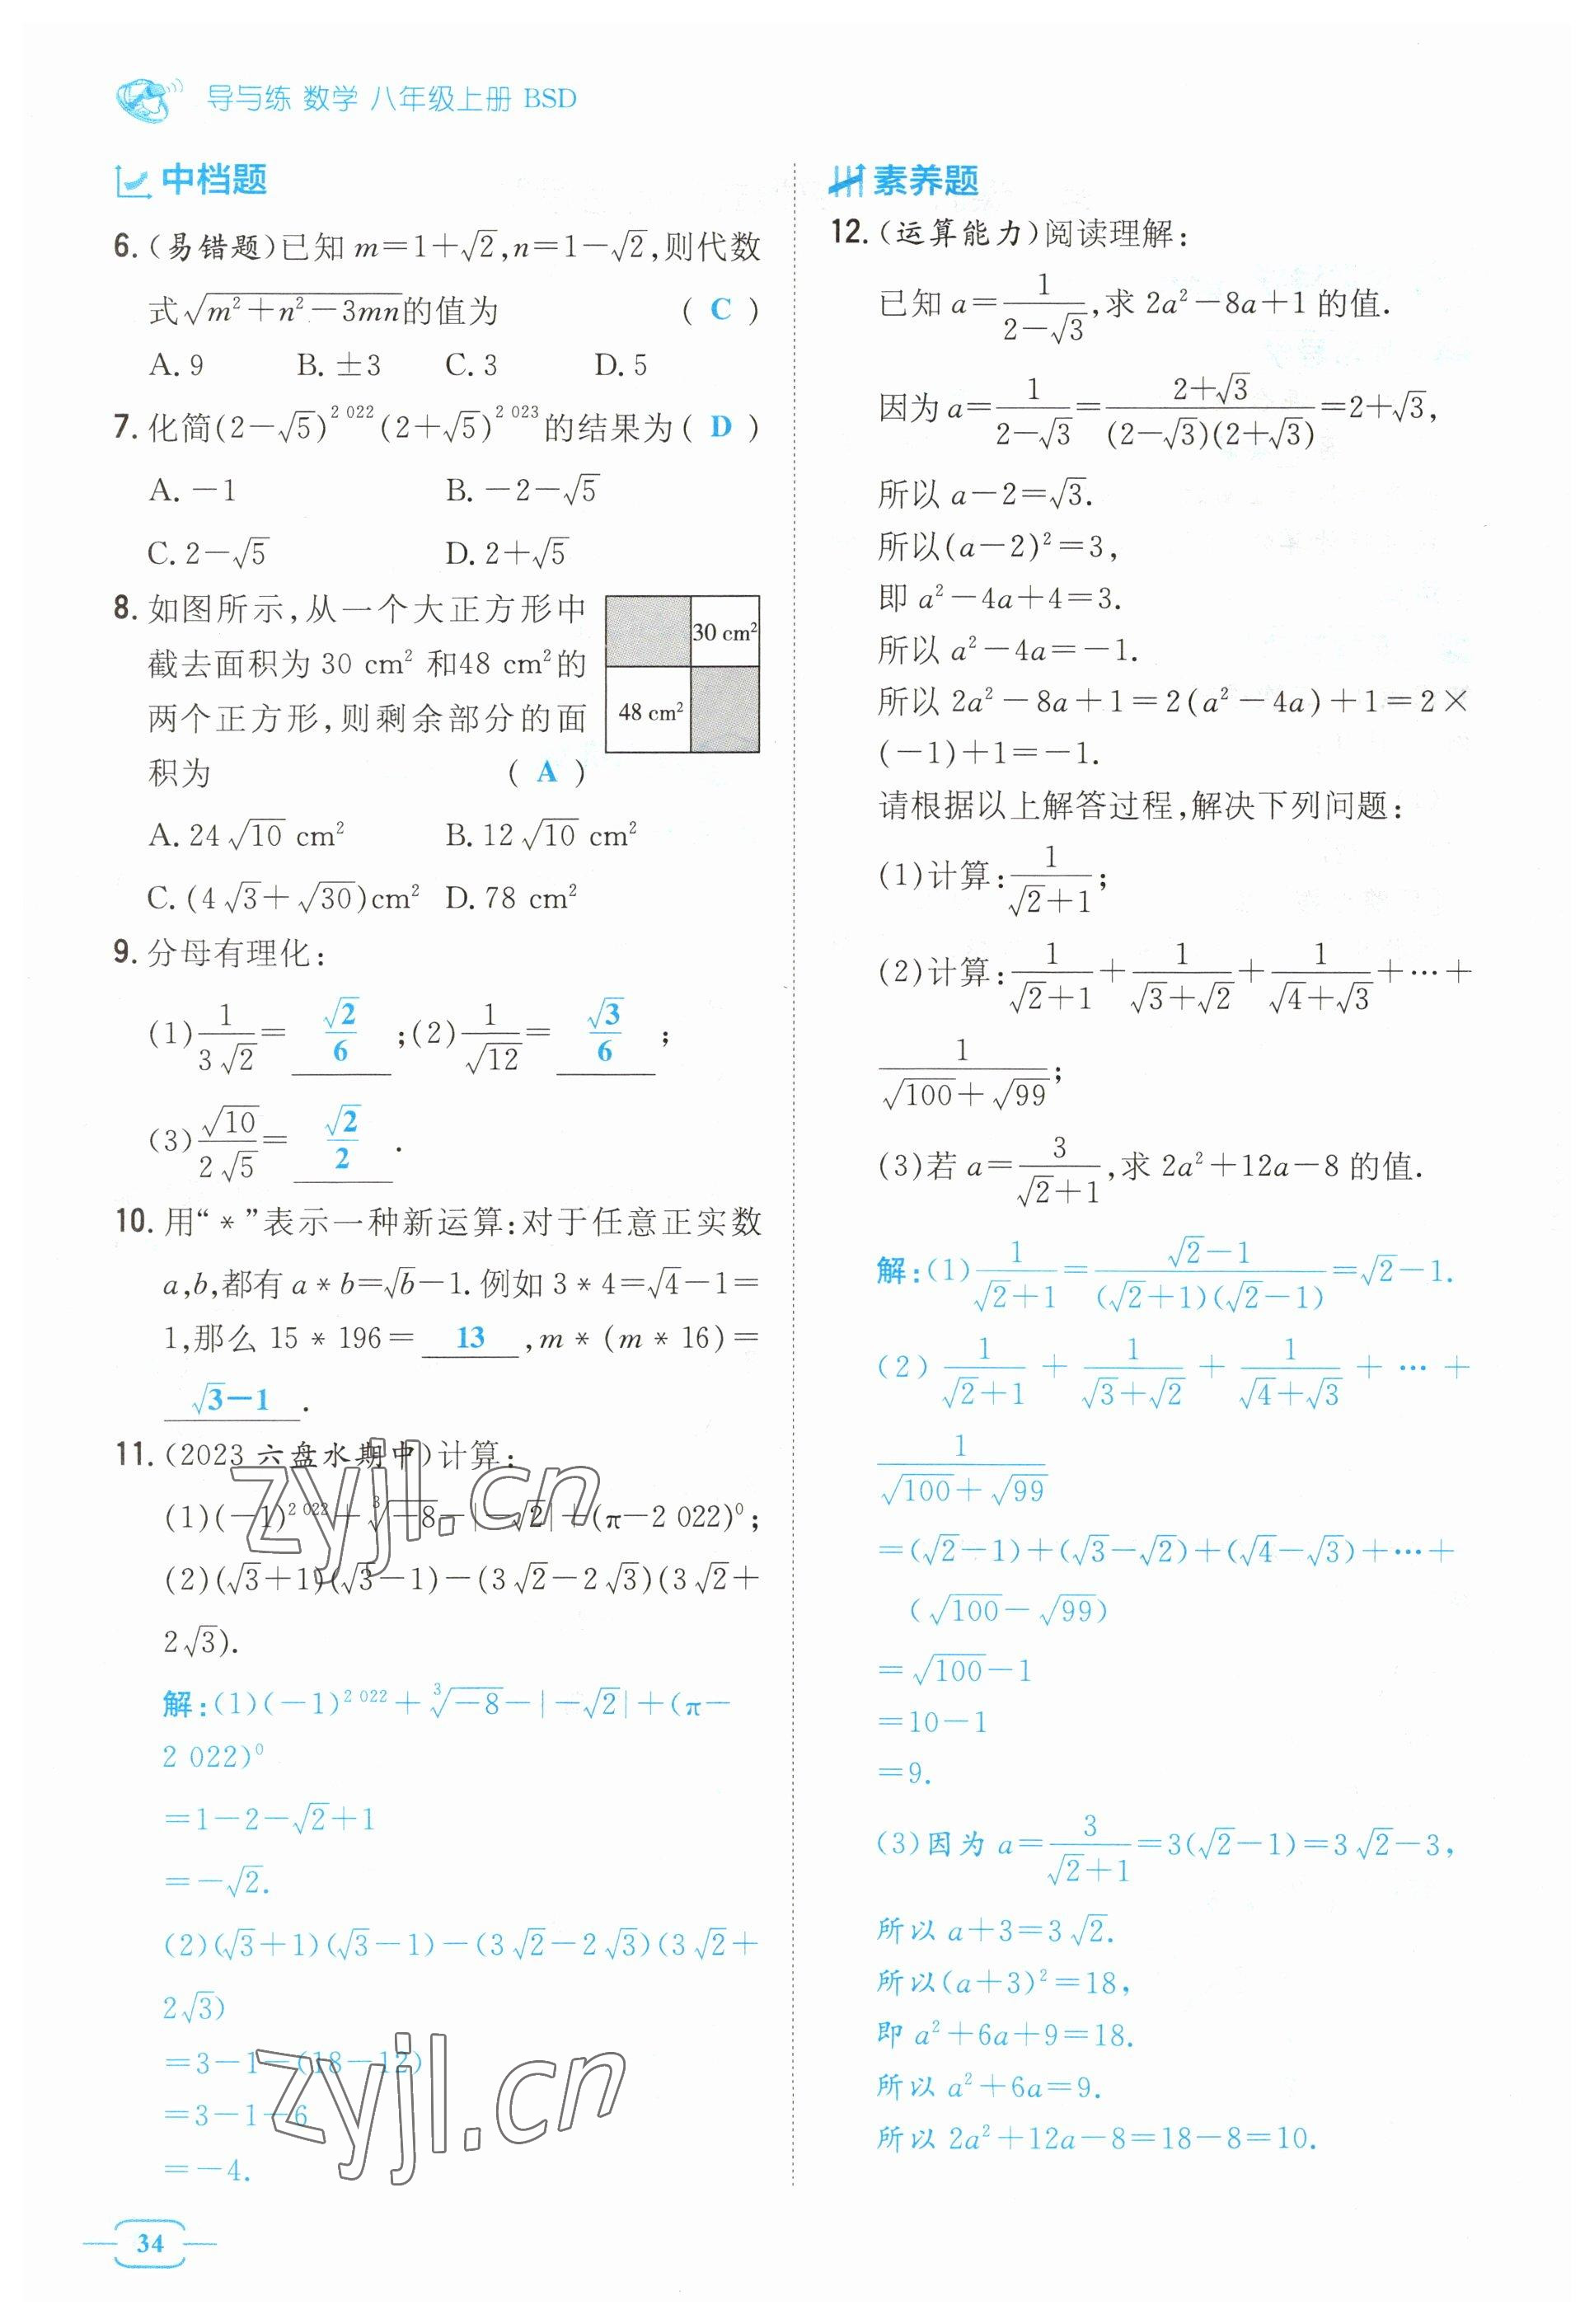 导与练 数学 八年级上册 BSD
中档题
6.(易错题)已知 m=1+√2,n=1-√2,则代数
式√(m²+n²-3mn)的值为 ( C )
A. 9 B. ±3 C. 3 D. 5
7. 化简(2-√5)^2 022(2+√5)^2 023的结果为( D )
A. -1 B. -2-√5
C. 2-√5 D. 2+√5
8. 如图所示,从一个大正方形中
截去面积为 30 cm² 和48 cm²的
两个正方形,则剩余部分的面
积为 ( A )
30 cm²
48 cm²
A. 24√10 cm² B. 12√10 cm²
C. (4√3+√30)cm² D. 78 cm²
9. 分母有理化:
(1)1/(3√2)= √2/6 ;(2)1/√12= √3/6 ;
(3)√10/(2√5)= √2/2 .
10. 用“*”表示一种新运算:对于任意正实数
a,b,都有 a*b=√b-1. 例如 3*4=√4-1=
1,那么 15*196= 13 ,m*(m*16)=
√3-1 .
11.(2023 六盘水期中)计算:
(1)(-1)^2 022+∛-8-|-√2|+(π-2 022)⁰;
(2)(√3+1)(√3-1)-(3√2-2√3)(3√2+
2√3).
解:(1)(-1)^2 022+∛-8-|-√2|+(π-
2 022)⁰
=1-2-√2+1
=-√2.
(2)(√3+1)(√3-1)-(3√2-2√3)(3√2+
2√3)
=3-1-(18-12)
=3-1-6
=-4.
素养题
12.(运算能力)阅读理解:
已知 a=1/(2-√3),求 2a²-8a+1 的值.
因为 a=1/(2-√3)=(2+√3)/((2-√3)(2+√3))=2+√3,
所以 a-2=√3.
所以(a-2)²=3,
即 a²-4a+4=3.
所以 a²-4a=-1.
所以 2a²-8a+1=2(a²-4a)+1=2×
(-1)+1=-1.
请根据以上解答过程,解决下列问题:
(1)计算:1/(√2+1);
(2)计算:1/(√2+1)+1/(√3+√2)+1/(√4+√3)+…+
1/(√100+√99);
(3)若 a=3/(√2+1),求 2a²+12a-8 的值.
解:(1)1/(√2+1)=(√2-1)/((√2+1)(√2-1))=√2-1.
(2)1/(√2+1)+1/(√3+√2)+1/(√4+√3)+…+
1/(√100+√99)
=(√2-1)+(√3-√2)+(√4-√3)+…+
(√100-√99)
=√100-1
=10-1
=9.
(3)因为 a=3/(√2+1)=3(√2-1)=3√2-3,
所以 a+3=3√2.
所以(a+3)²=18,
即 a²+6a+9=18.
所以 a²+6a=9.
所以 2a²+12a-8=18-8=10.
zyjl.cn
zyjl.cn
34